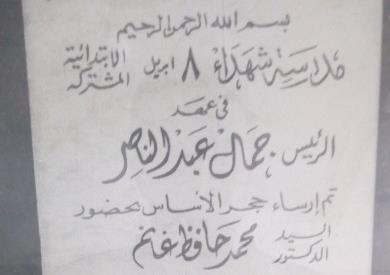 بسم الله الرحمن الرحيم
مدرسة شهداء ٨ ابريل الابتدائية المشتركة
في عهد
الرئيس جمال عبد الناصر
تم إرساء حجر الأساس بحضور
السيد الدكتور محمد حافظ غانم